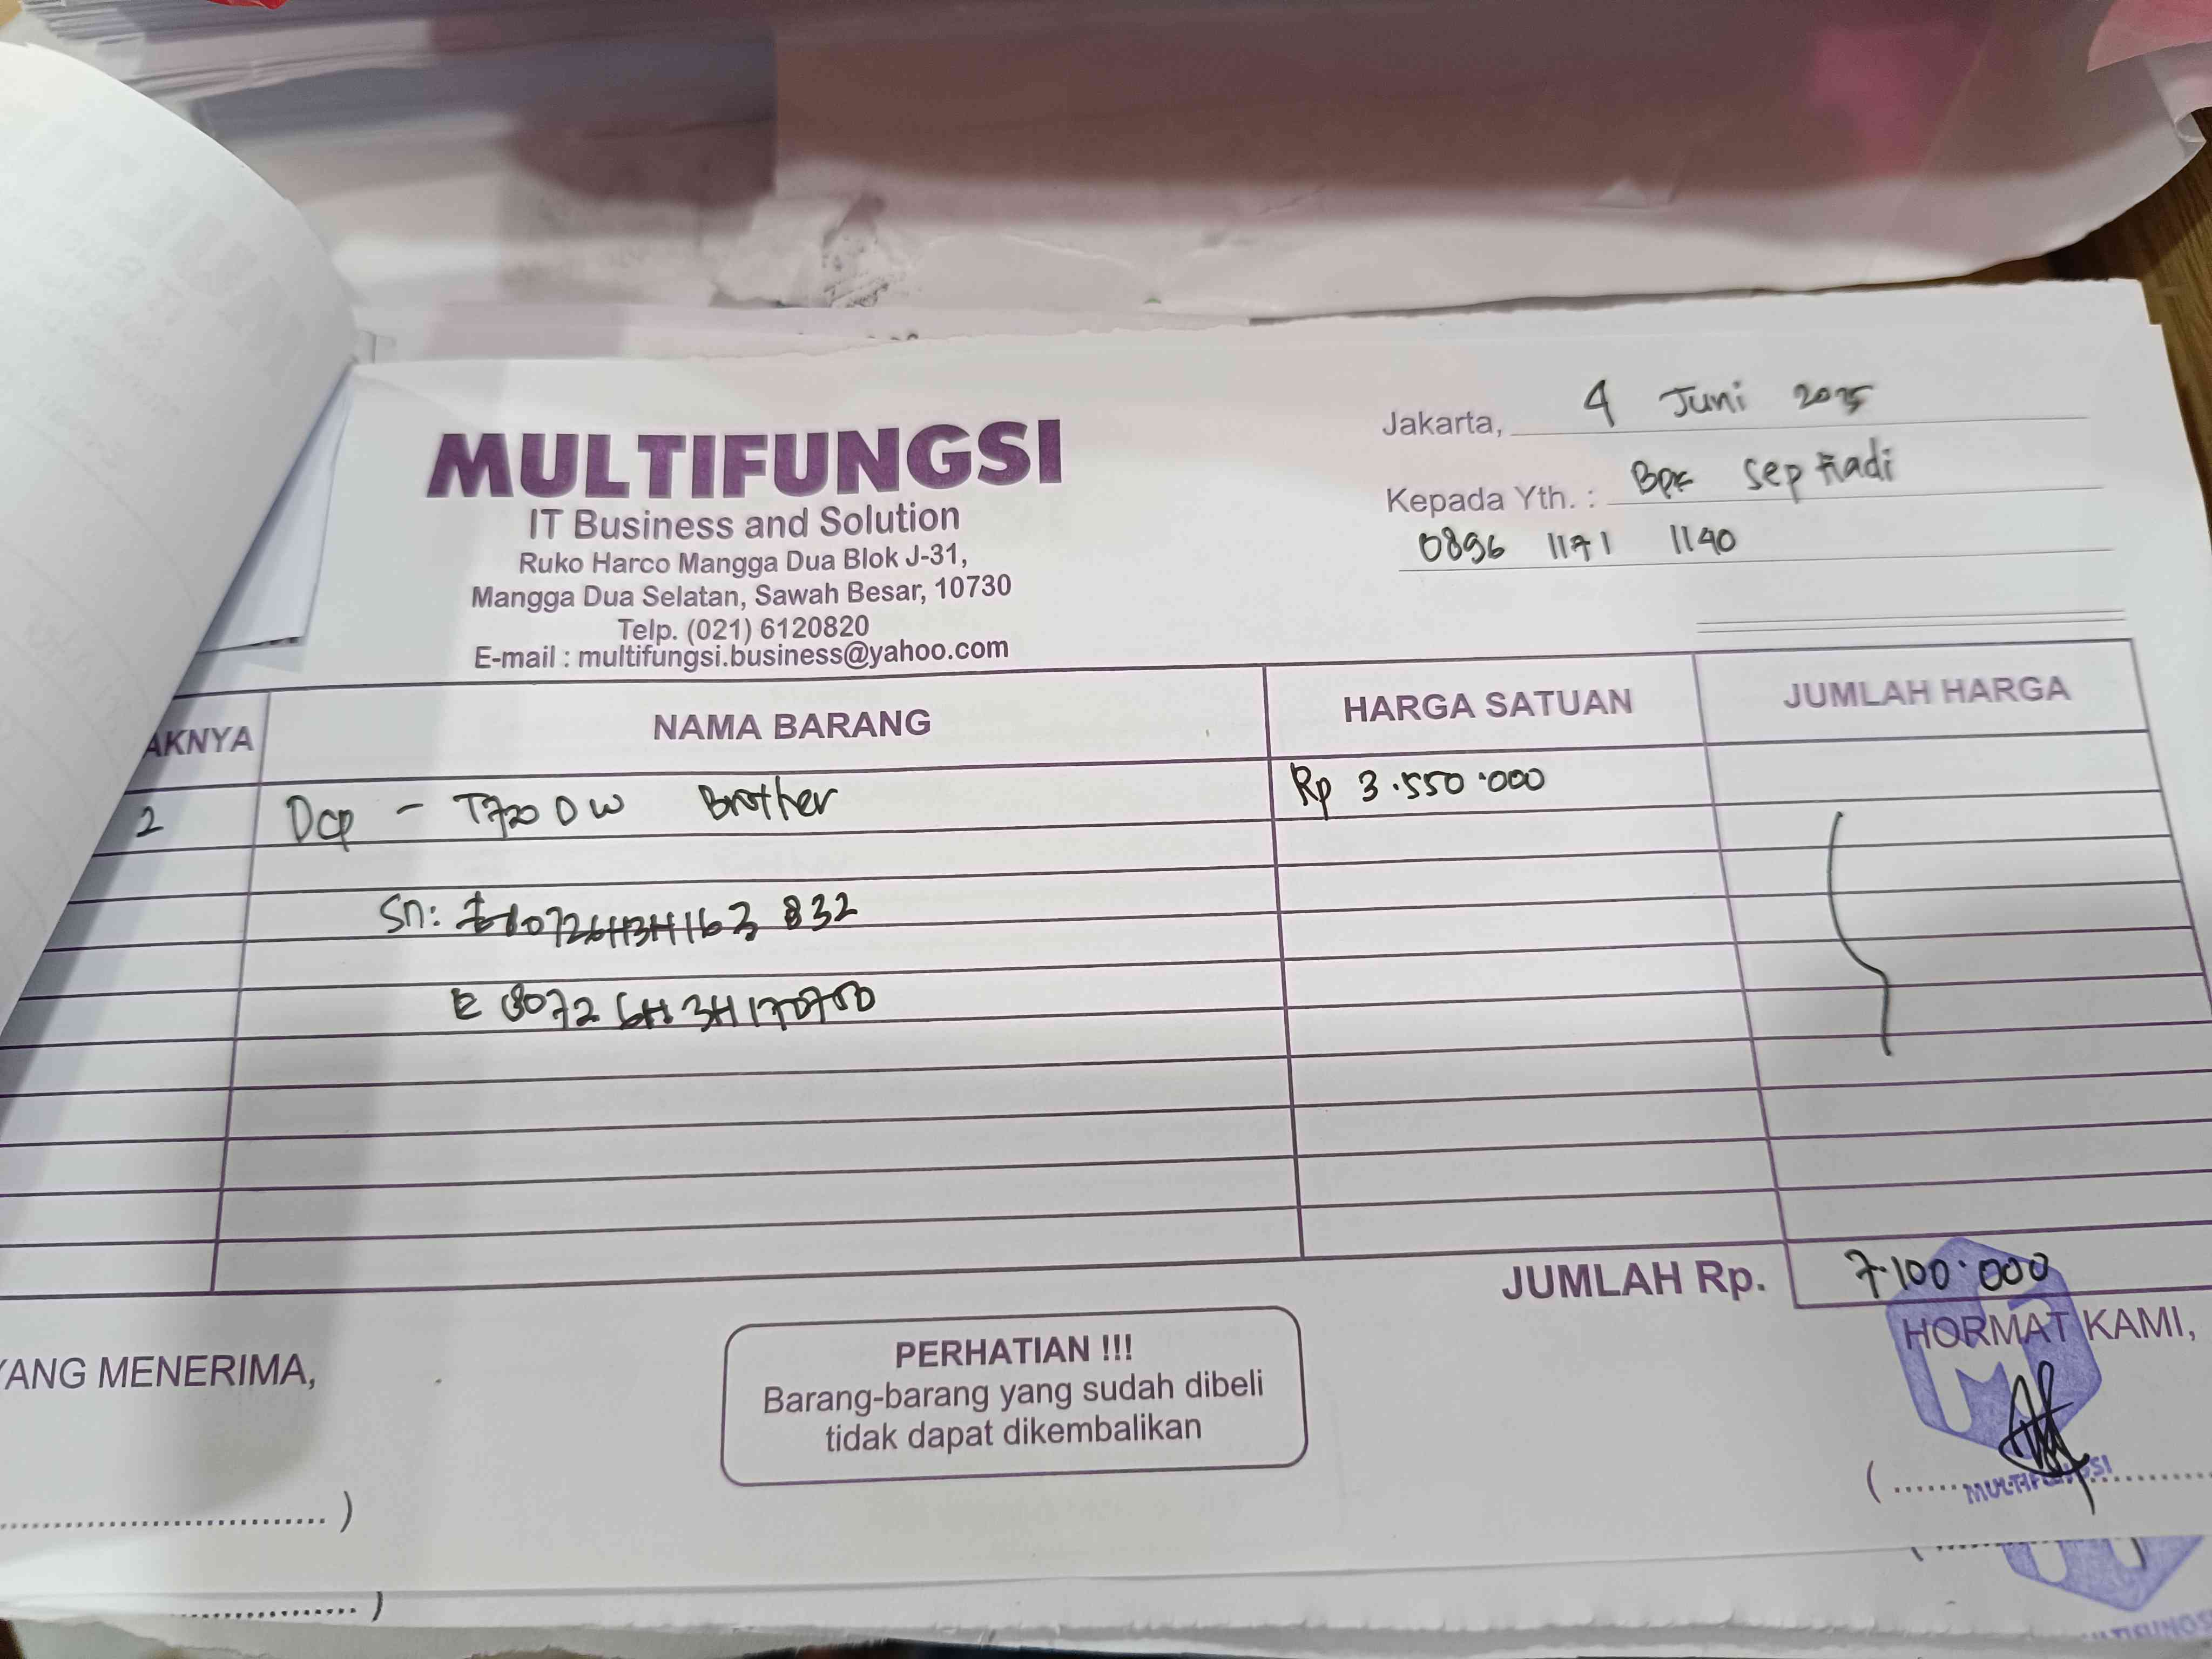 MULTIFUNGSI
IT Business and Solution
Ruko Harco Mangga Dua Blok J-31,
Mangga Dua Selatan, Sawah Besar, 10730
Telp. (021) 6120820
E-mail : multifungsi.business@yahoo.com
Jakarta, 4 Juni 2025
Kepada Yth. : Bpk Septiadi
0896 1171 1140
AKNYA NAMA BARANG HARGA SATUAN JUMLAH HARGA
2 Dcp - T720DW Brother Rp 3.550.000
SN: E80726H3H163 832
E 80726H3H170750
JUMLAH Rp. 7.100.000
YANG MENERIMA,
PERHATIAN !!!
Barang-barang yang sudah dibeli
tidak dapat dikembalikan
HORMAT KAMI,
MULTIFUNGSI